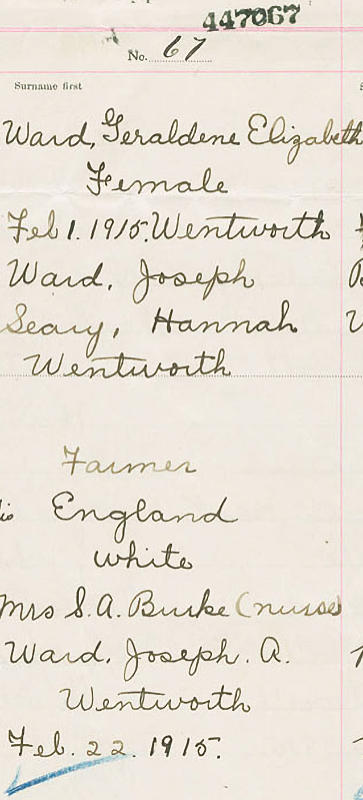 447067
No. 67
Surname first
Ward, Geraldene Elizabeth
Female
Feb 1. 1915. Wentworth
Ward, Joseph
Seary, Hannah
Wentworth
Farmer
England
white
Mrs S. A. Burke (nurse)
Ward, Joseph. A.
Wentworth
Feb. 22. 1915.